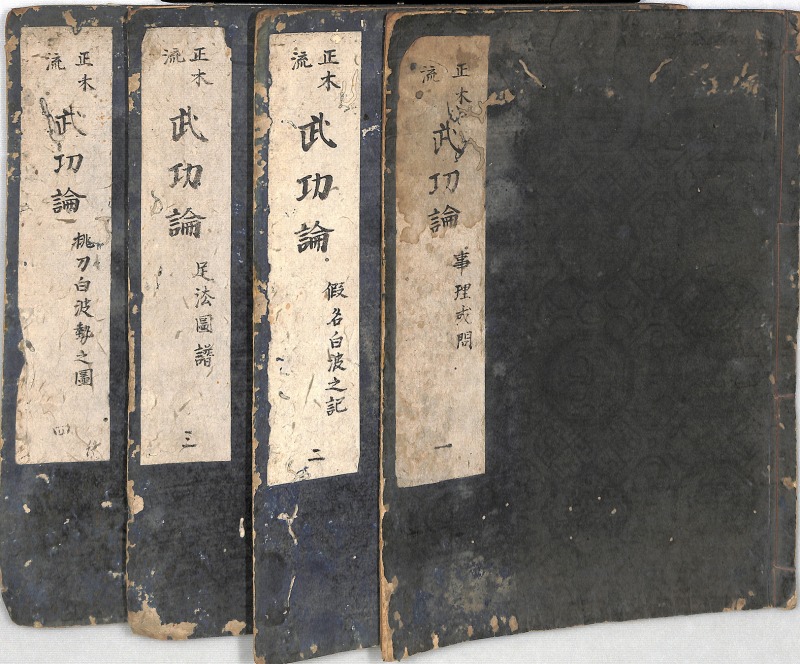 正木流
武功論
事理或問
一
正木流
武功論
假名白波之記
二
正木流
武功論
足法圖譜
三
正木流
武功論
桃刀白波勢之圖
四